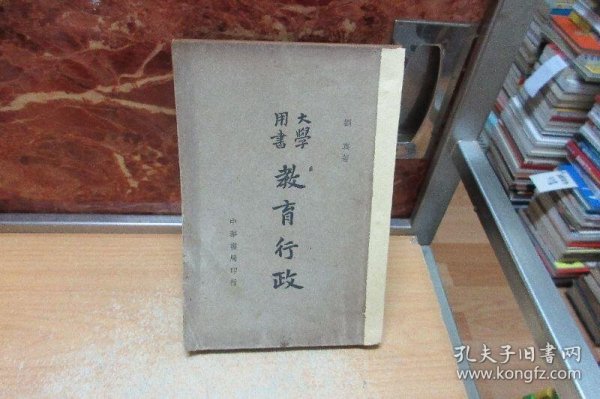 劉真著
大學
用書
教育行政
中華書局印行
孔夫子旧书网
www.kongfz.com